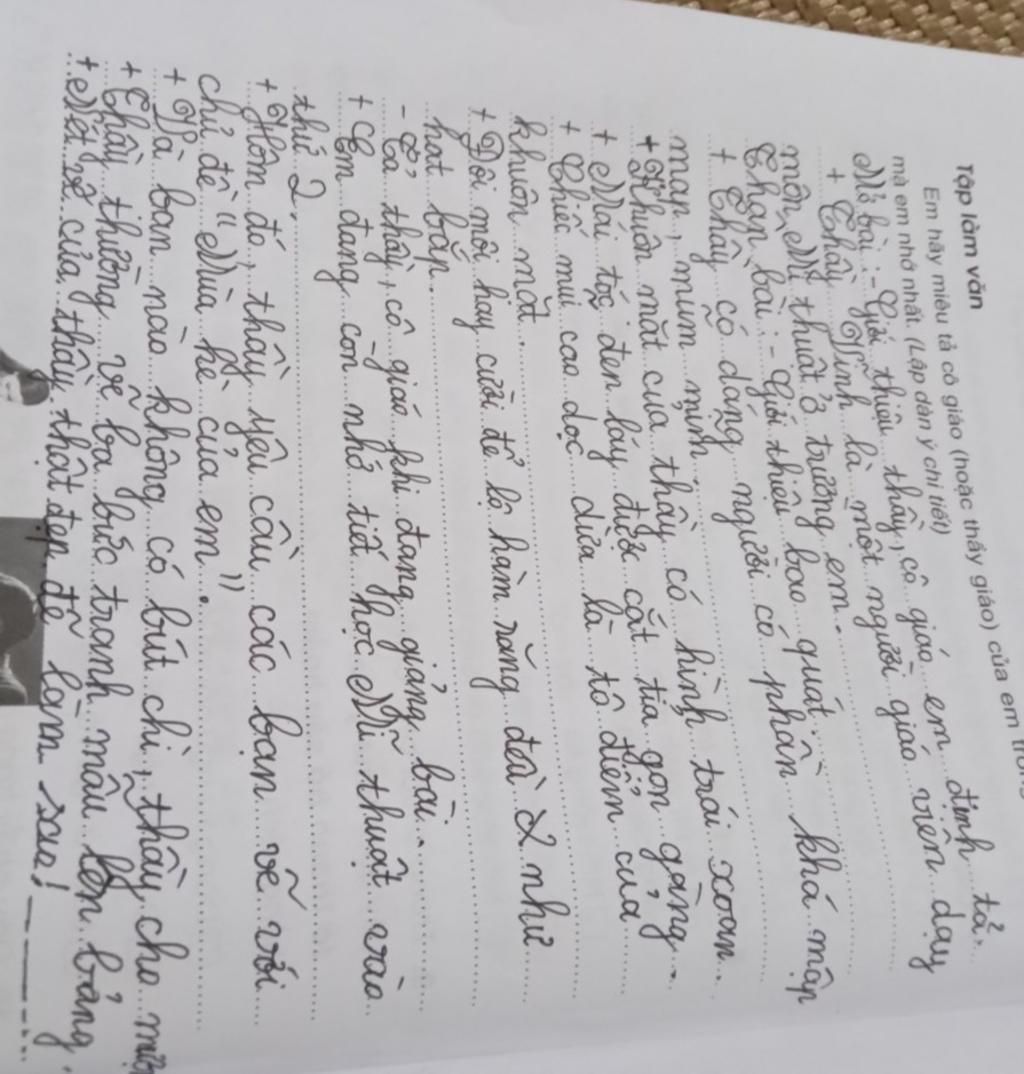 Tập làm văn
Em hãy miêu tả cô giáo (hoặc thầy giáo) của em
mà em nhớ nhất. (Lập dàn ý chi tiết)
Mở bài: - Giới thiệu thầy, cô giáo em định tả.
+ Thầy Vinh là một người giáo viên dạy
môn Mĩ thuật ở trường em.
Thân bài: - Giới thiệu bao quát.
+ Thầy có dáng người có phần khá mập
mạp, mũm mĩm.
+ Khuôn mặt của thầy có hình trái xoan.
+ Mái tóc đen láy được cắt tỉa gọn gàng.
+ Chiếc mũi cao dọc dừa là tô điểm của
khuôn mặt.
+ Đôi môi hay cười để lộ hàm răng đều như
hạt bắp.
- Tả thầy, cô giáo khi đang giảng bài.
+ Em đang còn nhớ tiết học Mĩ thuật vào
thứ 2.
+ Hôm đó, thầy yêu cầu các bạn vẽ với
chủ đề "Mùa hè của em".
+ Và bạn nào không có bút chì, thầy cho mượn
+ Thầy thường vẽ ba bức tranh mẫu lên bảng.
+ Nét vẽ của thầy thật đẹp đẽ làm sao!